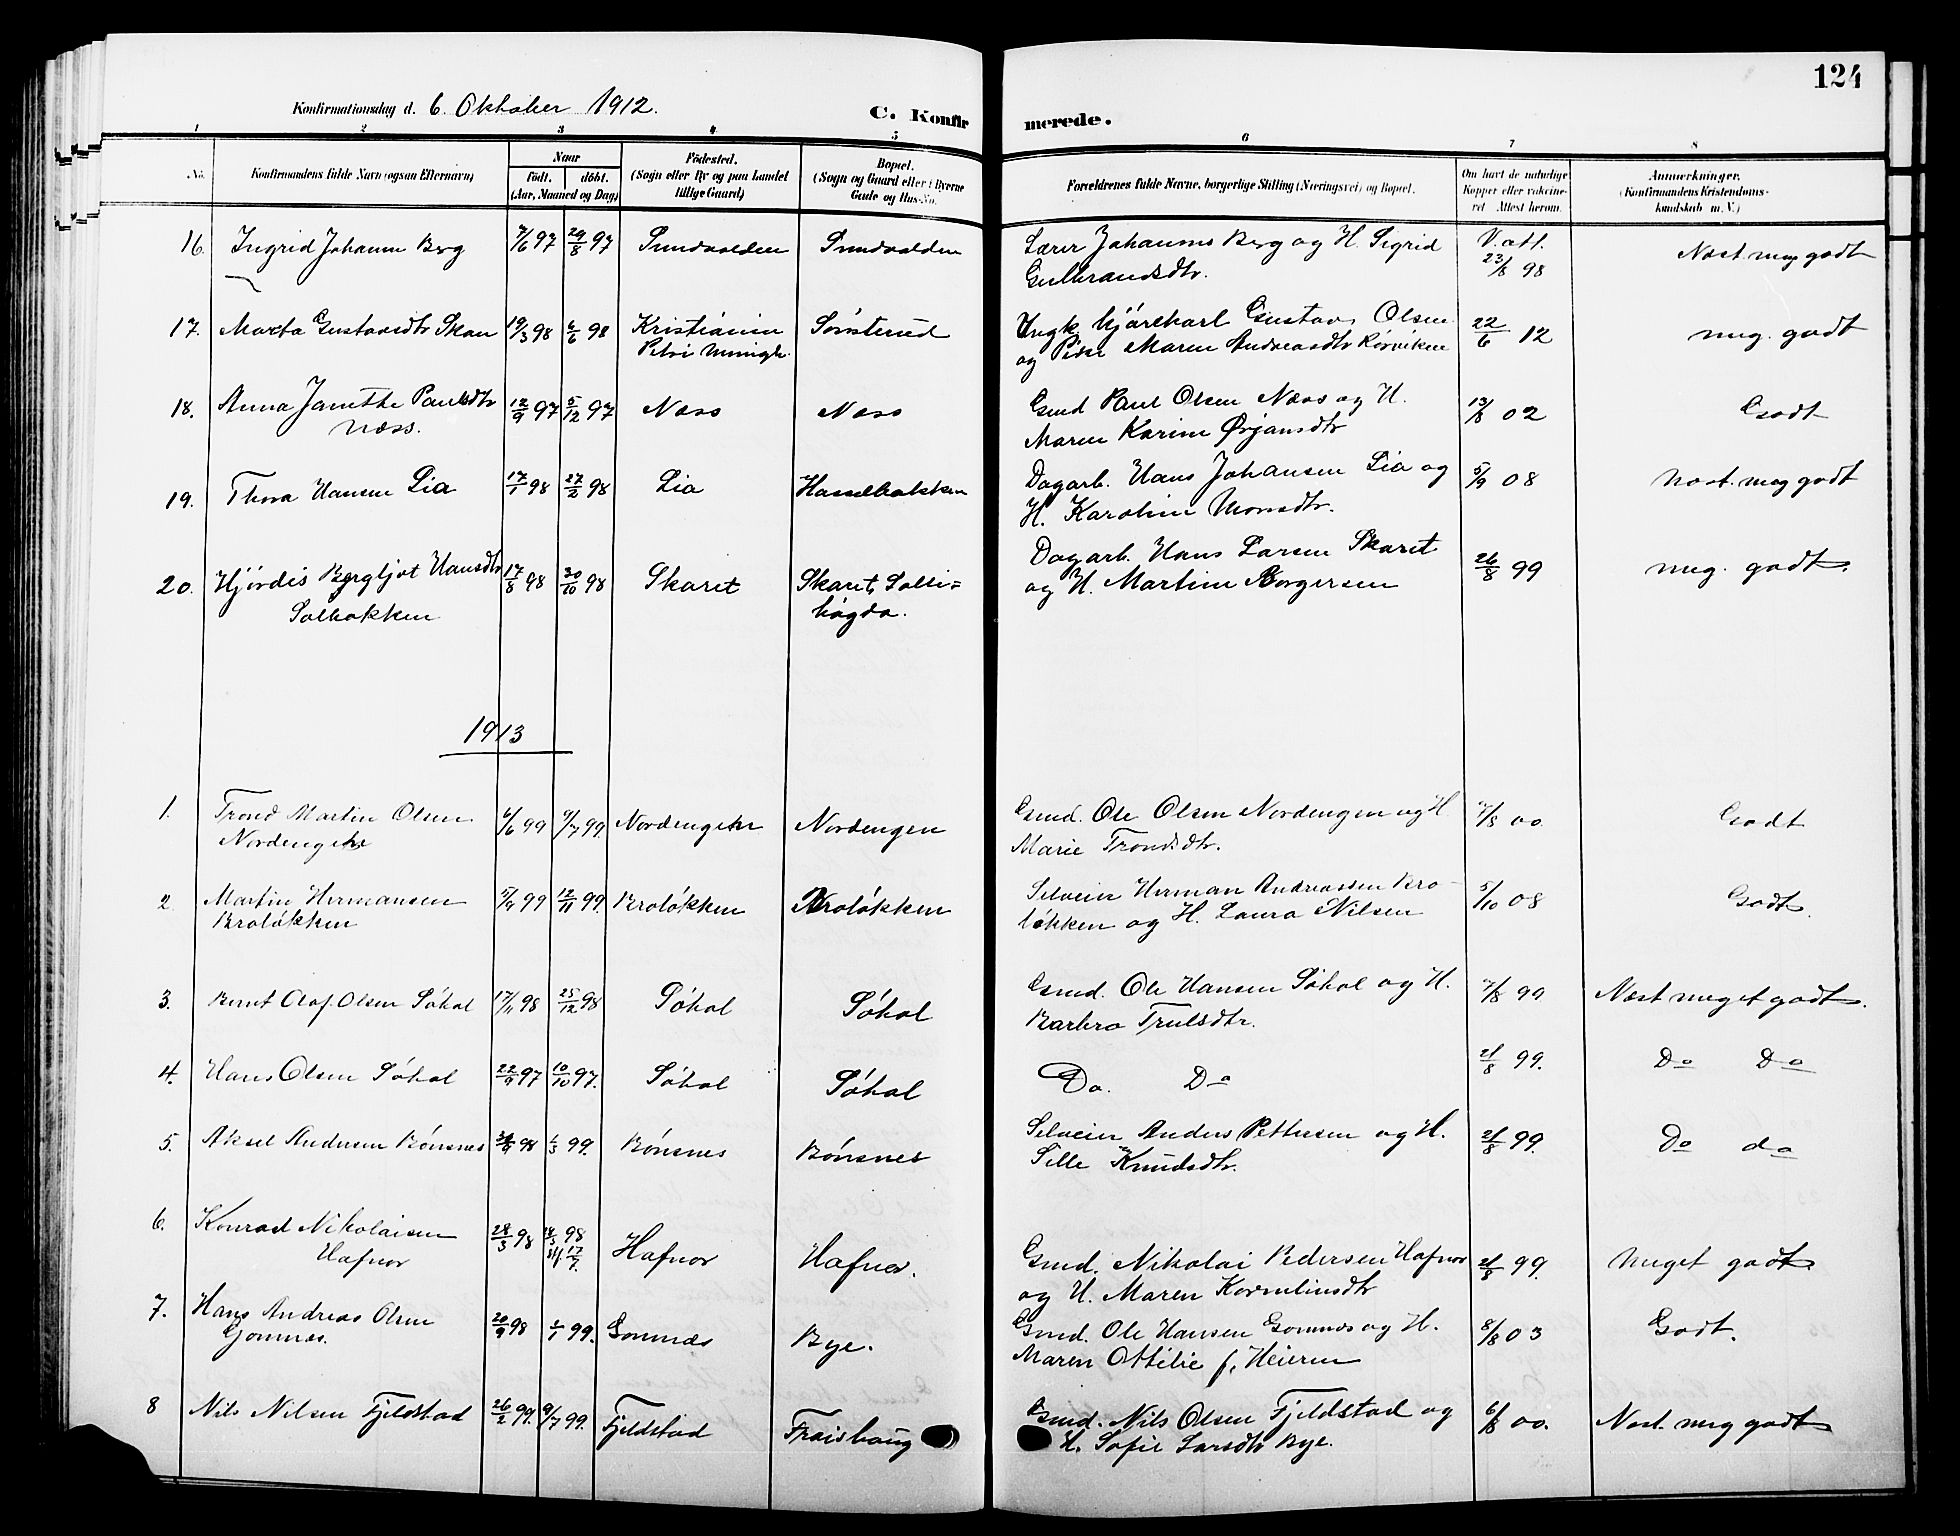 124
Konfirmationsdag d. 6. Oktober 1912.
C. Konfir merede.
1 2 3 4 5 6 7 8
No.
Konfirmandens fulde Navn (ogsaa Efternavn)
Naar
Födt. döbt.
(Aar, Maaned og Dag)
Födested.
(Sogn eller By og paa Landet
tillige Gaard)
Bopæl.
(Sogn og Gaard eller i Byerne
Gade og Hus-No.
Forældrenes fulde Navne, borgerlige Stilling (Næringsvei) og Bopæl.
Om havt de naturlige
Kopper eller vaksine-
ret Attest herom.
Anmerkninger.
(Konfirmandens Kristendoms-
kundskab m. V.)
16. Ingrid Johanne Berg 7/6 97 29/8 97 Sundvolden Sundvolden Lærer Johannes Berg og H. Sigrid V. att. Næst. meg godt
Gulbrandsdtr. 23/8 98
17. Marta Gustavsdtr Skau 19/3 98 6/6 98 Kristiania Sønsterud Ungk. Gustav Olsen 22/6 12 meg. godt
Petri menigh. og Pike Maren Andreasdtr Rørviken
18. Anna Janethe Paulsdtr 12/9 97 5/12 97 Næss Næss Gmd Paul Olsen Næss og H. 13/8 02 Godt
Næss. Maren Karine Ørjansdtr
19. Thora Hansen Lia 17/1 98 27/2 98 Lia Hasselbakken Dagarb. Hans Johansen Lia og 5/9 08 Næst. meg godt
H. Karoline Monsdtr.
20. Hjördis Bergljot Hansdtr 17/8 98 30/10 98 Skaret Skaret, Solli= Dagarb. Hans Larsen Skaret 26/8 99 meg. godt.
Solbakken høgda. og H. Martine Borgersen
1913
1. Trond Martin Olsen 6/6 99 9/7 99. Nordengen Nordengen Gmd. Ole Olsen Nordengen og H. 7/8 00. Godt
Nordengen Marie Trondsdtr.
2. Martin Hermansen 5/9 99 12/11 99. Brolökken Brolökken Selveier Herman Andreassen Bro- 5/10 08 Godt.
Brolökken lökken og H. Laura Nilsen
3. Bernt Olaf Olsen Söhol 17/11 98 25/12 98 Söhol Söhol Gmd. Ole Hansen Söhol og H. 7/8 99 Næst meget godt.
Barbro Trulsdtr.
4. Hans Olsen Söhol 22/9 97 10/10 97. Söhol Söhol Do. Do 21/8 99. Do Do
5. Aksel Andersen Bönsnes 98 99. Bönsnes Bönsnes Selveier Anders Pettersen og H. 21/8 99. Do do
Sille Knudsdtr.
6. Konrad Nikolaisen 28/3 98 98 Hafnor Hafnor. Gmd. Nikolai Pedersen Hafnor 21/8 99. Meget godt
Hafnor 17/7. og H. Maren Kornelinsdtr
7. Hans Andreas Olsen 20/9 98 1/1 99. Gomnæs Bye. Gmd. Ole Hansen Gomnæs og H. 8/8 03 Godt.
Gomnæs. Maren Ottilie f. Heieren
8 Nils Nilsen Fjeldstad 26/2 99. 9/7 99. Fjeldstad Froishaug Gmd. Nils Olsen Fjeldstad og 6/8 00. Næst. meg godt
H. Sofie Larsdtr Bye.